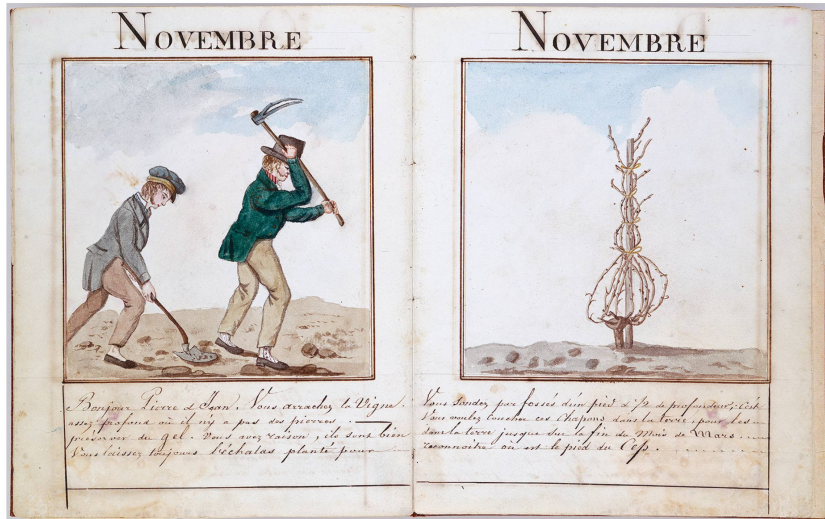 NOVEMBRE
Bonjour Pierre & Jean. Vous arrachez la Vigne.
assez profond où il n'y a pas des pierres.
préserver du gel. Vous avez raison, ils sont bien
Vous laissez toujours l'échalas planté pour
NOVEMBRE
Vous sondez par fossés d'un pied & ½ de profondeur; C'est
Vous voulez coucher ces Chapons dans la terre, pour les
dans la terre jusque sur la fin du Mois de Mars
reconnoitre où est le pied du Cep.